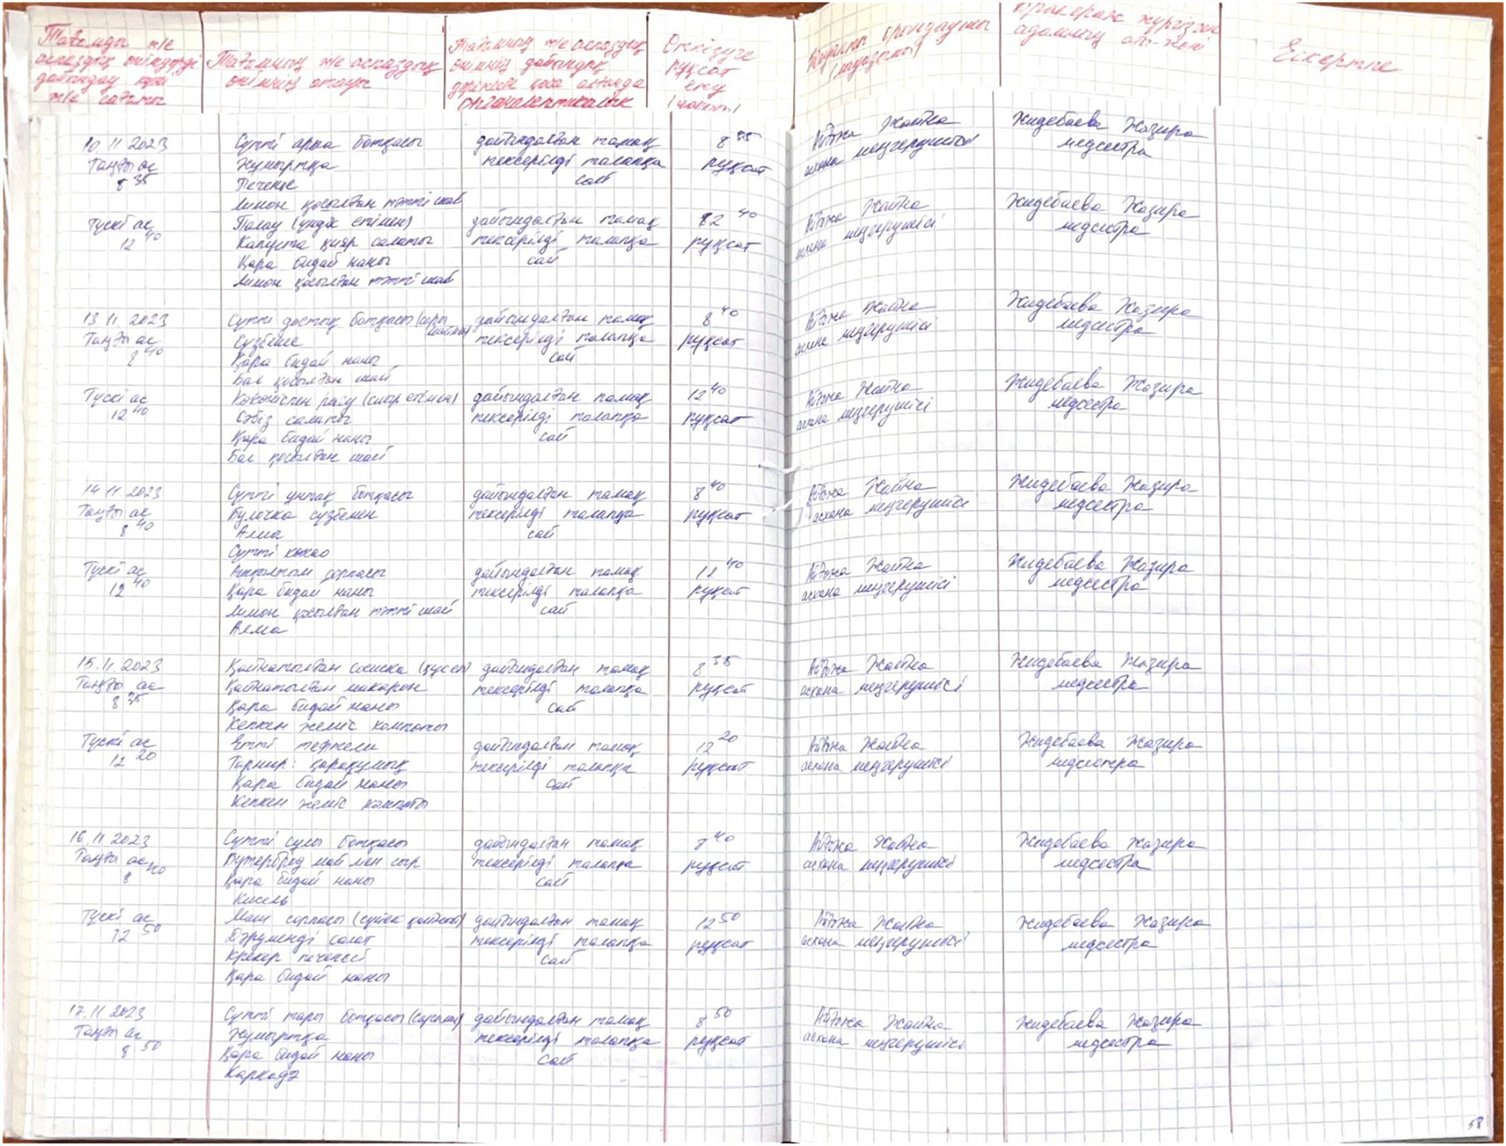 Тағамды ж/е
аспаздық өнімдерді
дайындау күні
ж/е сағаты
Тағамның ж/е аспаздық
өнімнің атауы
Тағамның ж/е аспаздық
өнімнің дайындық
дәрежесін қоса алғанда
органолептикалық
Өткізуге
рұқсат
ету
(уақыты)
Жауапты орындаушы
(лауазымы)
Бракераж жүргізген
адамның аты-жөні
Ескертпе
10.11.2023 Сүтті арпа ботқасы дайындалған тамақ 8 35 Айтжа Жайна Жидебаева Жазира
Таңғы ас Жұмыртқа тексерілді талапқа рұқсат асхана меңгерушісі медсестра
8 35 Печенье сай
Лимон қосылған тәтті шай
Түскі ас Палау (үндік етімен) дайындалған тамақ 12 40 Айтжа Жайна Жидебаева Жазира
12 40 Капуста қияр салаты тексерілді талапқа рұқсат асхана меңгерушісі медсестра
Қара бидай наны сай
Лимон қосылған тәтті шай
13.11.2023 Сүтті достық ботқасы (сары дайындалған тамақ 8 40 Айтжа Жайна Жидебаева Жазира
Таңғы ас Сүзбеше тексерілді талапқа рұқсат асхана меңгерушісі медсестра
8 40 Қара бидай наны сай
Бал қосылған шай
Түскі ас (сиыр етімен) дайындалған тамақ 12 40 Айтжа Жайна Жидебаева Жазира
12 40 Сәбіз салаты тексерілді талапқа рұқсат асхана меңгерушісі медсестра
Қара бидай наны сай
Бал қосылған шай
14.11.2023 Сүтті ұнтақ ботқасы дайындалған тамақ 8 40 Айтжа Жайна Жидебаева Жазира
Таңғы ас Булочка сүзбемен тексерілді талапқа рұқсат асхана меңгерушісі медсестра
8 40 Алма сай
Сүтті какао
Түскі ас сорпасы дайындалған тамақ 12 40 Айтжа Жайна Жидебаева Жазира
12 40 Қара бидай наны тексерілді талапқа рұқсат асхана меңгерушісі медсестра
Лимон қосылған тәтті шай сай
Алма
15.11.2023 Қайнатылған сосиска (құс еті) дайындалған тамақ 8 35 Айтжа Жайна Жидебаева Жазира
Таңғы ас Қайнатылған макарон тексерілді талапқа рұқсат асхана меңгерушісі медсестра
8 35 Қара бидай наны сай
Кепкен жеміс компоты
Түскі ас Етті тефтели дайындалған тамақ 12 20 Айтжа Жайна Жидебаева Жазира
12 20 Гарнир: қарақұмық тексерілді талапқа рұқсат асхана меңгерушісі медсестра
Қара бидай наны сай
Кепкен жеміс компоты
16.11.2023 Сүтті сұлы ботқасы дайындалған тамақ 8 40 Айтжа Жайна Жидебаева Жазира
Таңғы ас Бутерброд май мен сыр тексерілді талапқа рұқсат асхана меңгерушісі медсестра
8 40 Қара бидай наны сай
Кисель
Түскі ас Маш сорпасы (сүйек қайнатпа) дайындалған тамақ 12 50 Айтжа Жайна Жидебаева Жазира
12 50 Дәруменді салат тексерілді талапқа рұқсат асхана меңгерушісі медсестра
Крекер печеньесі сай
Қара бидай наны
17.11.2023 Сүтті тары ботқасы (сары май) дайындалған тамақ 8 50 Айтжа Жайна Жидебаева Жазира
Таңғы ас Жұмыртқа тексерілді талапқа рұқсат асхана меңгерушісі медсестра
8 50 Қара бидай наны сай
Каркадэ
58